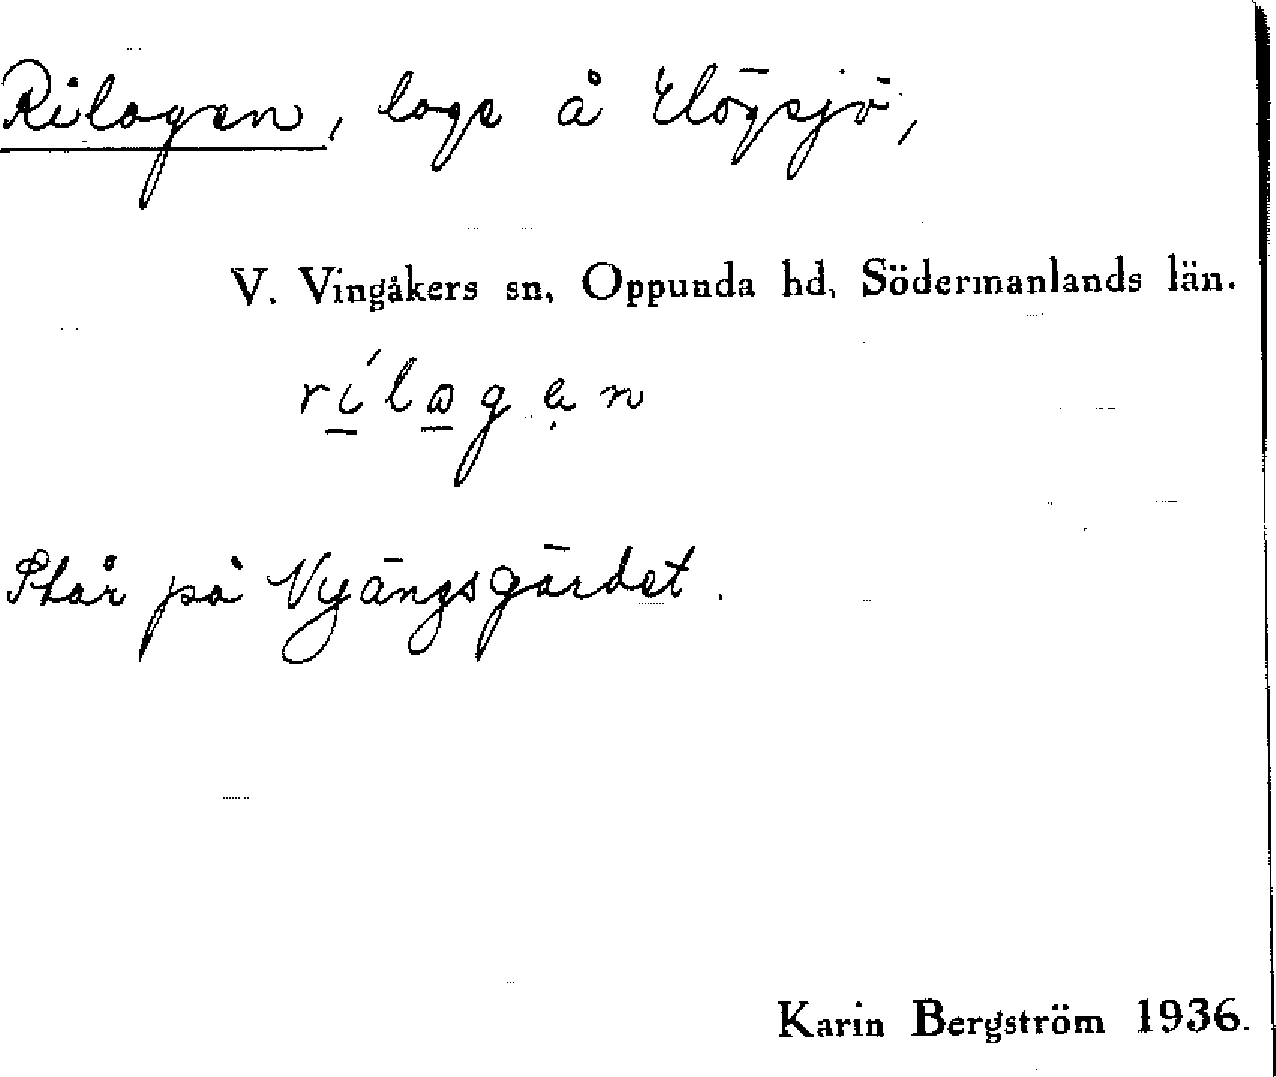 Rilogen, loge å Högsjö,
V. Vingåkers sn, Oppunda hd, Södermanlands län.
rílogen
Står på Nyängsgärdet.
Karin Bergström 1936.